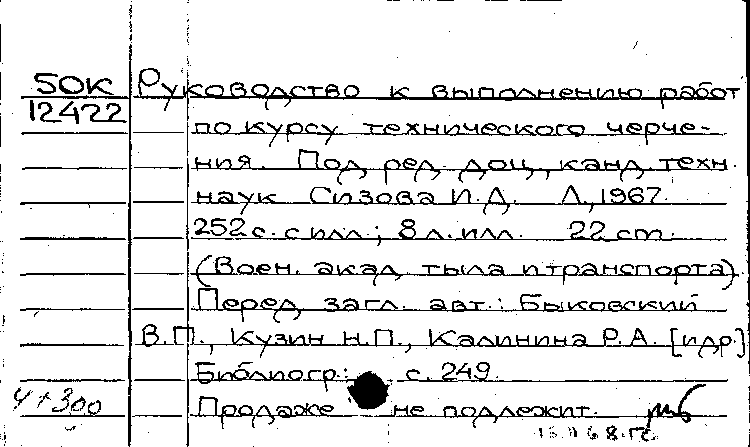 50К Руководство к выполнению работ
12422
по курсу технического черче-
ния. Под ред. доц., канд. техн.
наук Сизова И.Д. Л., 1967.
252 с. с илл.; 8 л. илл. 22 cm.
(Воен. акад. тыла и транспорта).
Перед загл. авт.: Быковский
В.П., Кузин Н.П., Калинина Р.А. [и др.]
Библиогр.: с. 249.
4+300
Продаже не подлежит.